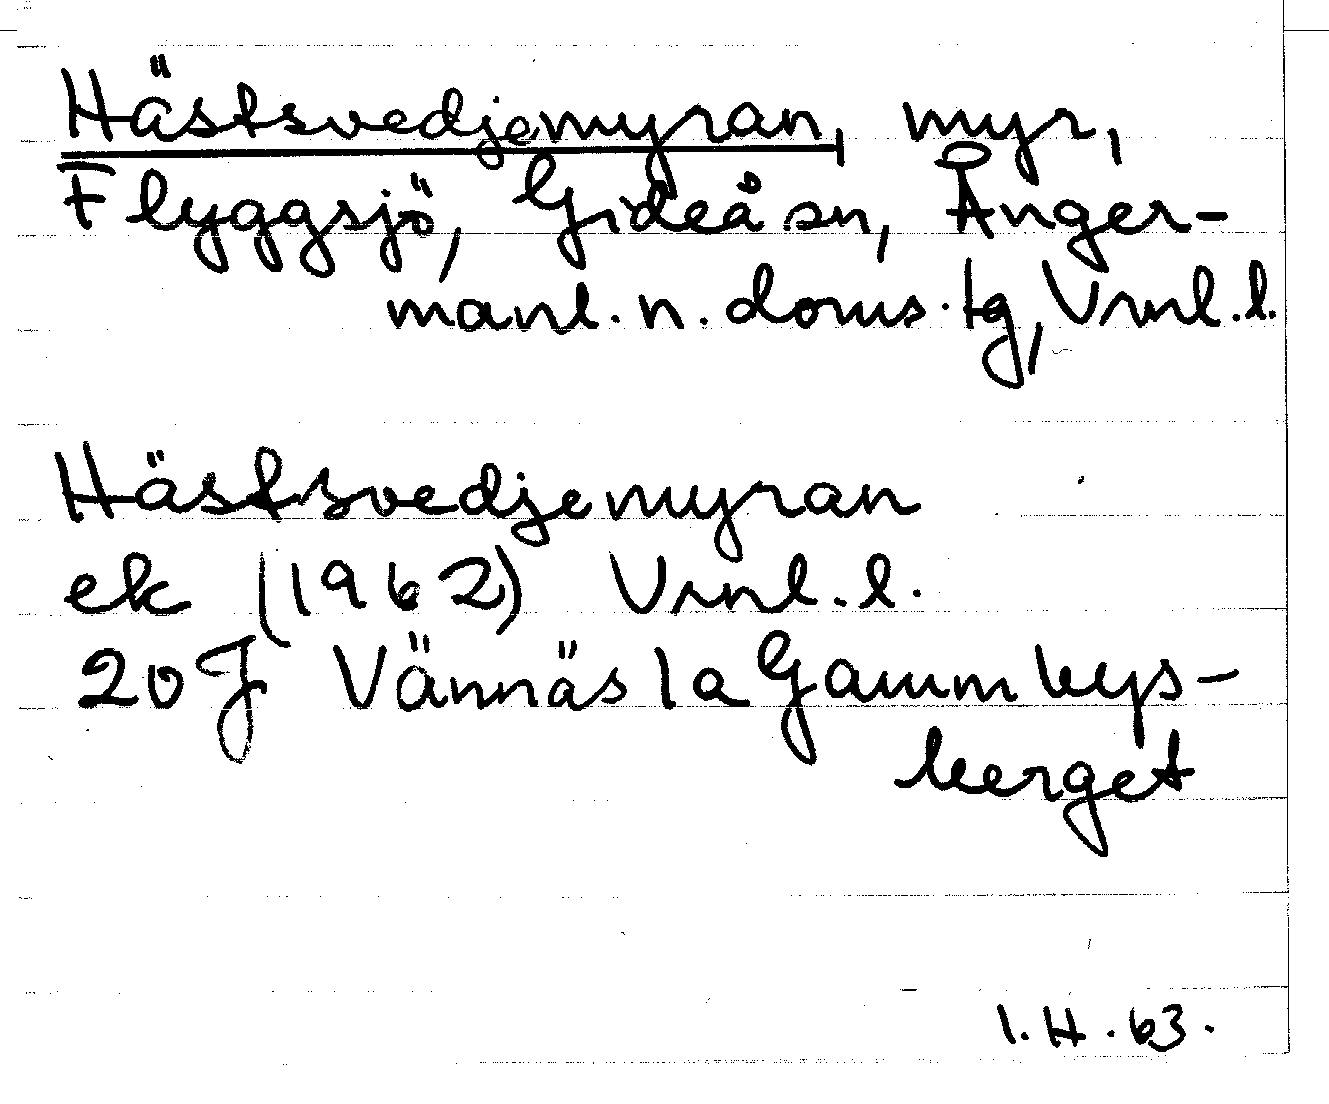 Hästsvedjemyran, myr,
Flyggsjö, Gideå sn, Ånger-
manl. n. doms. tg, Vrnl. l.
Hästsvedjemyran
ek (1962) Vrnl. l.
20 J Vännäs 1a Gammbys-
berget
I. H. 63.